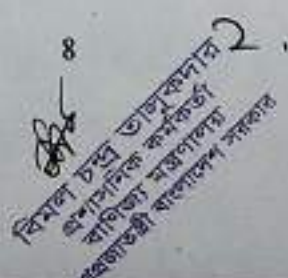 8
২
বিমল চন্দ্র তালুকদার
প্রশাসনিক কর্মকর্তা
বাণিজ্য মন্ত্রণালয়
গণপ্রজাতন্ত্রী বাংলাদেশ সরকার